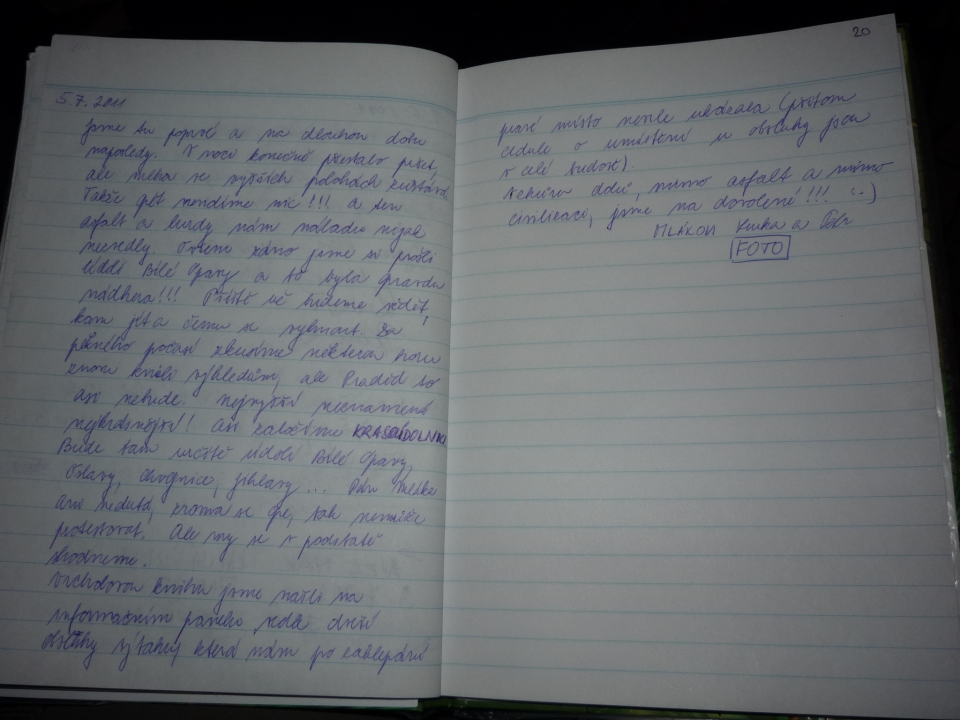 5.7.2011
Jsme tu poprvé a na dlouhou dobu
naposledy. V noci konečně přestalo pršet,
ale mlha ve vyšších polohách zůstává.
Takže opět nevidíme nic!!! a ten
asfalt a hrdy nám náladu nijak
nezvedly. Ovšem ráno jsme si prošli
údolí Bílé Opavy a to byla opravdu
nádhera!!! Příště už budeme vědět,
kam jít a čemu se vyhnout. Za
pěkného počasí zkusíme některou horu
znovu kvůli výhledům, ale Praděd to
asi nebude. Nejvyšší neznamená
nejkrásnější! Asi založíme KRASODOLNÍKA
Bude tam určitě údolí Bílé Opavy,
Oslavy, Chvojnice, Jihlavy... Pan
asi nedutá, zrovna se , tak nemůže
protestovat. Ale my se v podstatě
shodneme.
Vrcholovou knihu jsme našli na
informačním panelu vedle dveří
obsluhy výtahu, která nám po zaklepání
pravé místo nesile ukázala (přitom
cedule o umístění u obsluhy jsou
v celé budově).
Nehůru ddů, mimo asfalt a mimo
civilizaci, jsme na dovolené!!! :-)
MLÁKOVI Lenka a Petr
FOTO
20